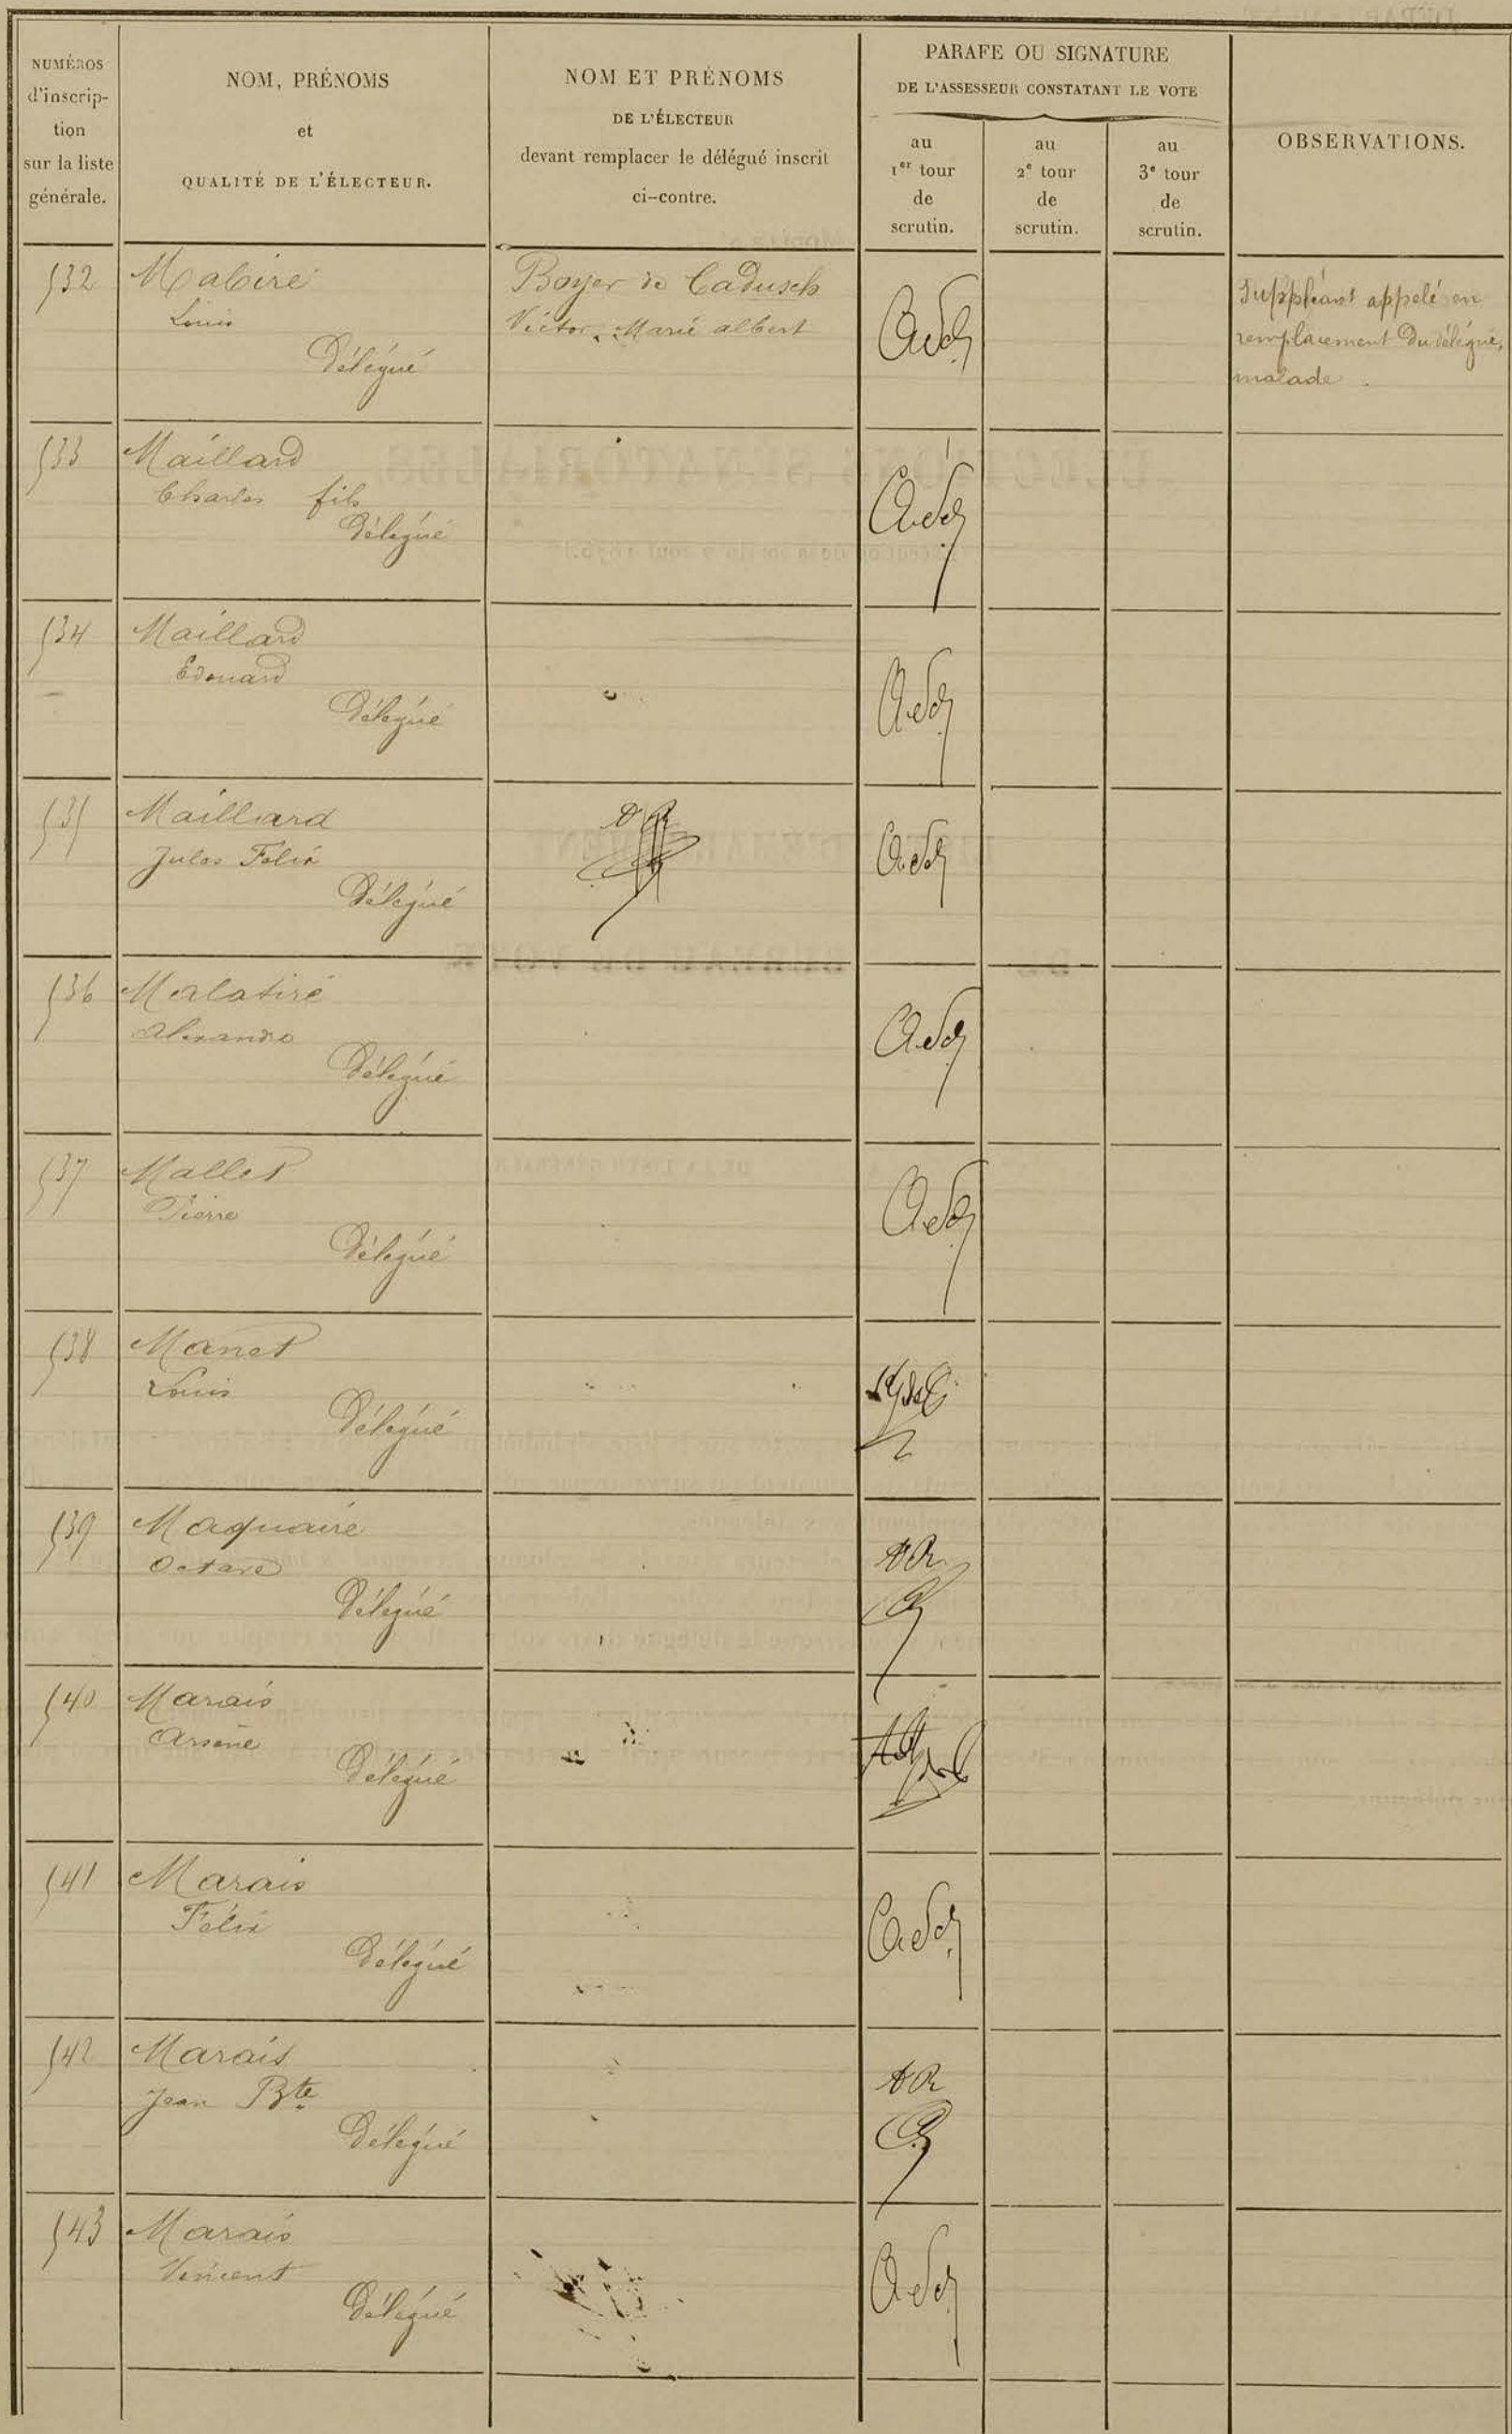 NUMÉROS
d'inscrip-
tion
sur la liste
générale.
NOM, PRÉNOMS
et
QUALITÉ DE L'ÉLECTEUR.
NOM ET PRÉNOMS
DE L'ÉLECTEUR
devant remplacer le délégué inscrit
ci-contre.
PARAFE OU SIGNATURE
DE L'ASSESSEUR CONSTATANT LE VOTE
au
1er tour
de
scrutin.
au
2e tour
de
scrutin.
au
3e tour
de
scrutin.
OBSERVATIONS.
532
Mabire
Louis
Délégué
Boyer de Cadusch
Victor, Marie albert
Suppléant appelé en
remplacement du délégué,
malade.
533
Maillard
Charles fils
Délégué
534
Maillard
Edouard
Délégué
535
Mailliard
Jules Félix
Délégué
536
Malatiré
Alexandre
Délégué
537
Mallet
Pierre
Délégué
538
Manet
Louis
Délégué
539
Maquaire
Octave
Délégué
540
Marais
Arsène
Délégué
541
Marais
Félix
Délégué
542
Marais
Jean Bte
Délégué
543
Marais
Vincent
Délégué